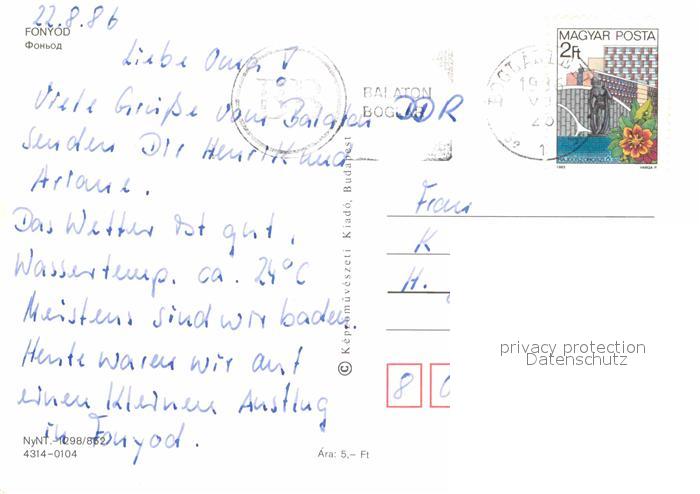 22.8.86
FONYÓD
Фоньод
Liebe Oma!
Viele Grüße vom Balaton
senden Dir Henrik und
Ariane.
Das Wetter ist gut,
Wassertemp. ca. 24°C
Meistens sind wir baden.
Heute waren wir auf
einen kleinen Ausflug
in Fonyod.
NyNT.-1298/862
4314-0104
Ára: 5,- Ft
© Képzőművészeti Kiadó, Budapest
BALATON
BOGLÁR
DDR
MAGYAR POSTA
2Ft
Frau
K
H.
8
privacy protection
Datenschutz